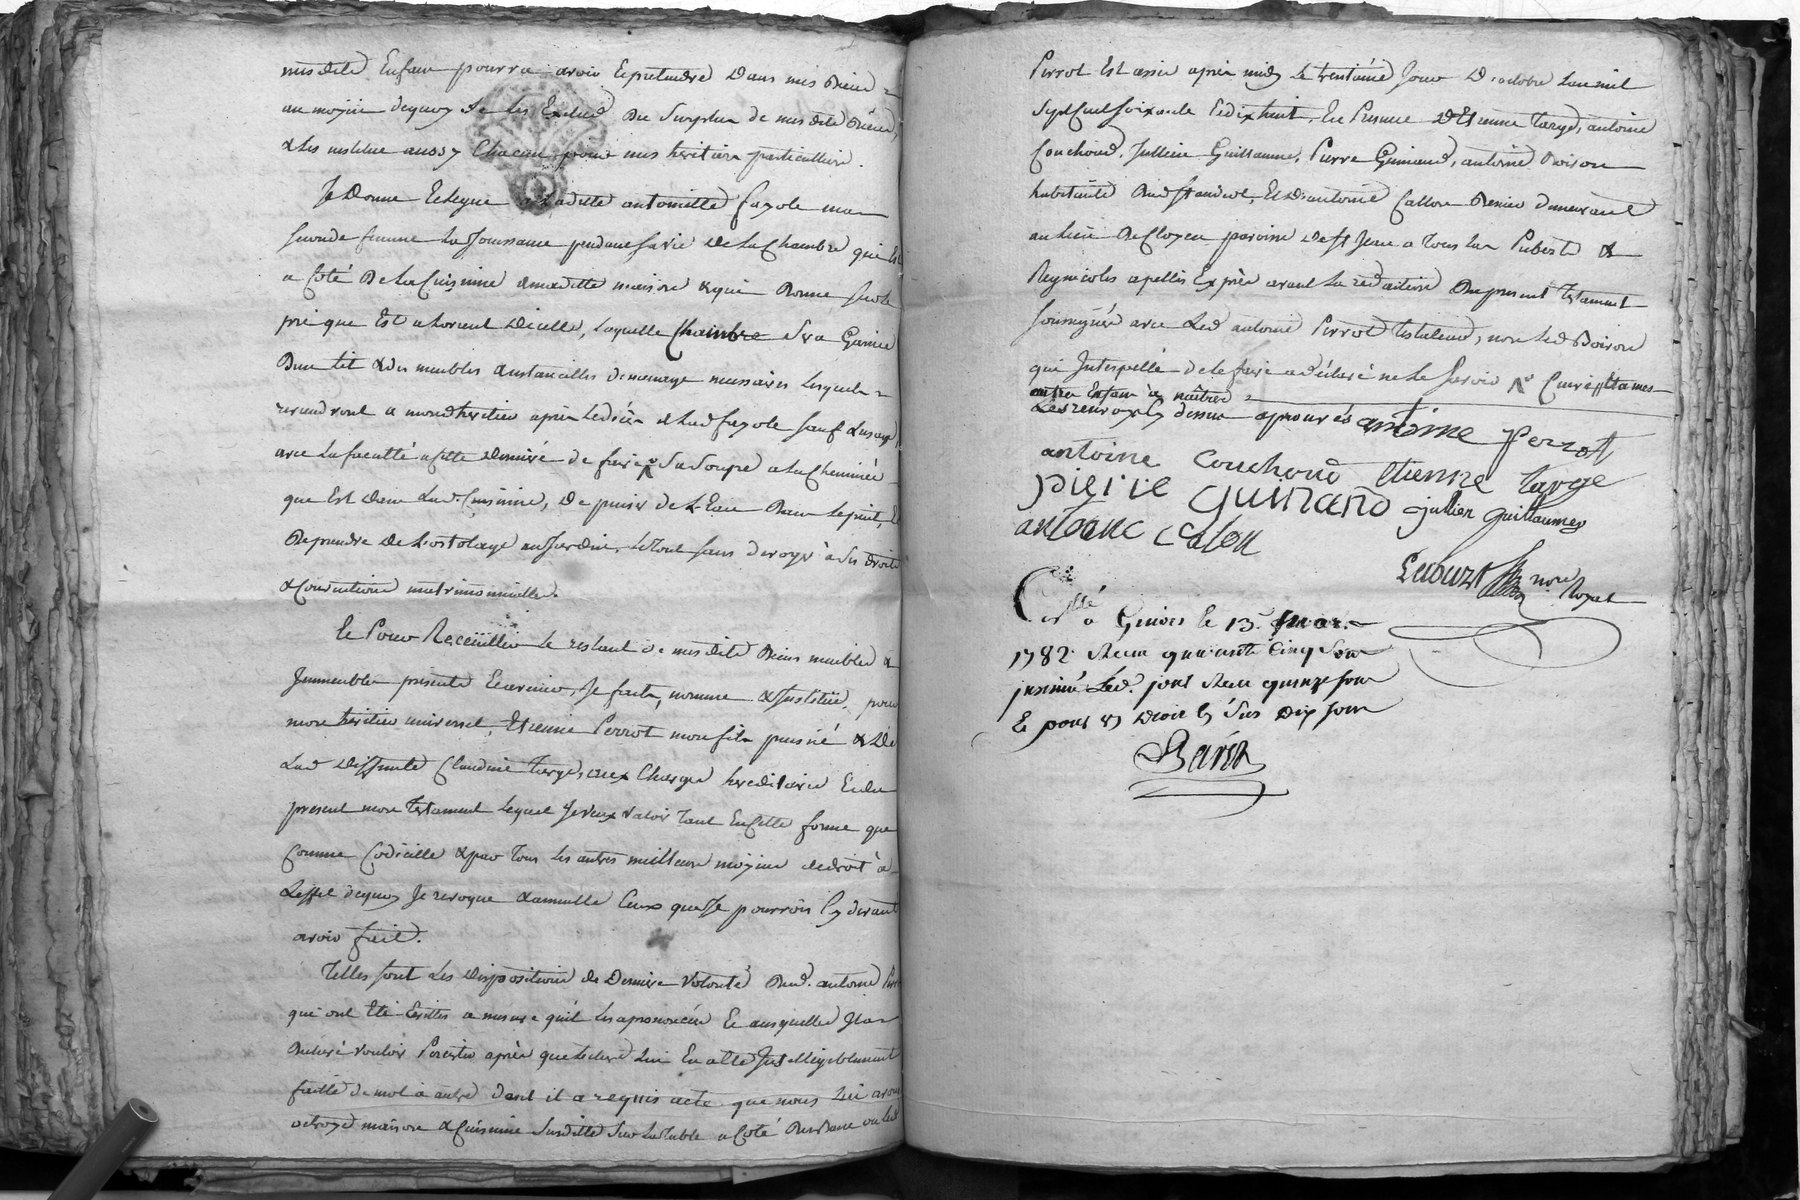 mesdits Enfans pourra avoir Et pretendre dans mes Biens
au moyen dequoy Je les Exclud du Surplus de mesdits Biens,
& les institue aussy Chacun pour mes heritiers particuliers.
Je Donne Et legue a Laditte antoinette fayole ma
seconde femme la Joüissance pendant sa vie de la Chambre qui Est
a Coté De la Cuisine de maditte maison & qui Donne sur le
pré que Est a lorient dicelle, laquelle Chambre sera Garnie
Dun lit & des meubles & ustancilles de menage necessaires lesquels
reviendront a mond. heritier après le décès de Lad fayole sauf Lusage
avec la faculté a Cette derniere de faire Sa Soupe a la Cheminée
que Est dans Lad. Cuisine, De puiser de L'Eau Dans le puit, Et
De prendre de l'ortolage au Jardin, le tout sans deroger à Ses droits
& Conventions matrimonialles.
Et Pour Receuillir le restant de mesdits Biens meubles &
Immeubles presents Et avenir, Je fait, nomme & Institue, pour
mon heritier universel, Etienne Perrot mon fils puisné & De
Lad deffunte Claudine Targe, aux Charges hereditaires Et du
present mon Testament lequel Je veux valoir Tant En Cette forme que
Comme Codicille & par Tous les autres meilleurs moyens de droit à
Leffet dequoy Je revoque & annulle Ceux que Je pourrois Cy devant
avoir fait.
Telles sont les dispositions de Derniere Volonté Dud. antoine Perrot
qui ont été Ecrittes a mesure quil les a prononcées Et ausquelles Il a
Declaré vouloir Persister après que lecture Lui En a été Intelligiblement
faitte de mot à autre dont il a requis acte que nous Lui avons
octroyé maison & Cuisine Susditte Sur la table a Coté du Banc ou led
Perrot Est assis après midy le trentième Jour D'octobre Lan mil
Sept Cent soixante Et dix huit, En Presence D'Etienne Targe, antoine
Couchoud, Jullien Guillaume, Pierre Guinand, antoine Boiron
habitants Dud St andeol, Et D'antoine Callon demeurant
au lieu de Cloyen paroisse de St Jean a Tous Les Puberts &
Regnicoles apellés Exprès avant La redaction Du present Testament
soussignés avec Led antoine Perrot testateur, non Led Boiron
qui Interpellé de le faire a déclaré ne le savoir
autres Enfans à naitre
Les renvoys Cy dessus aprouvés antoine perrot
antoine couchoud Etienne targe
pierre Guinand jullien guillaumes
antoine calon
nore Royal
Collé à Givors le 13. 
1782. Recu quarante Cinq Sous
insinué Led. jour Recu quinze sous
Et pour Droit Dix sous